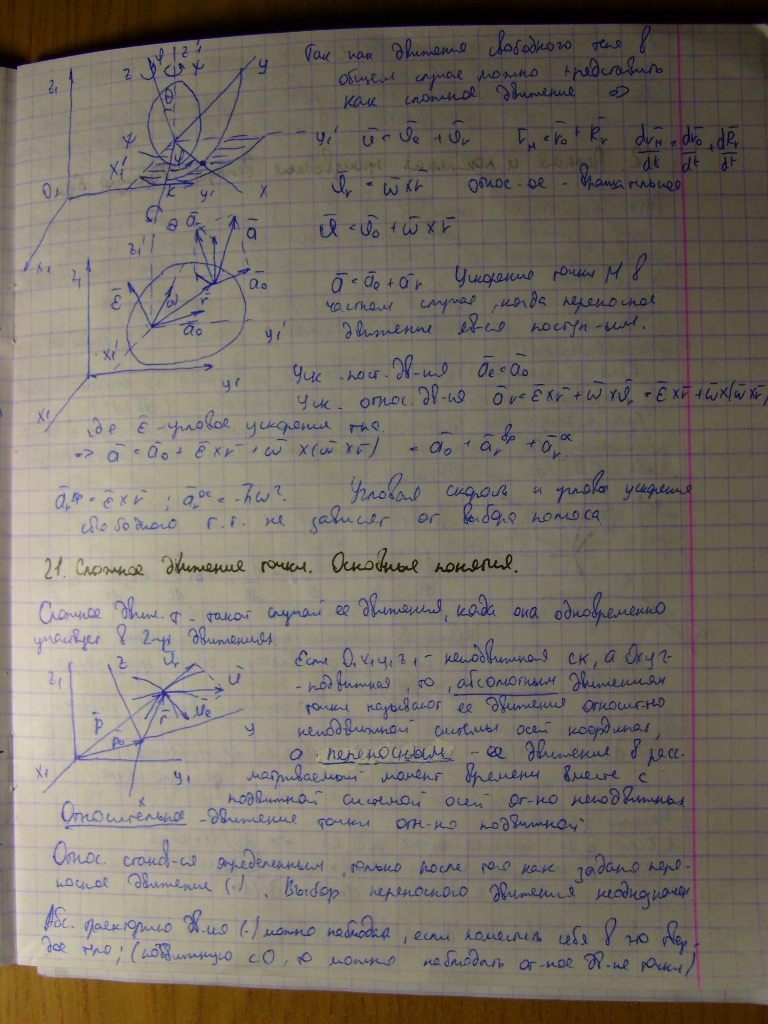 Так как движения свободного тела в
общем случае можно представить
как сложное движение ⇒
ū = v̄e + v̄r   r̄м = r̄o + R̄r   dr̄м/dt = dr̄o/dt + dR̄r/dt
v̄r = ω̄ × r̄   относ-ое - вращательное
v̄ = v̄o + ω̄ × r̄
ā = āo + ār Ускорение точки М в
частном случае, когда переносное
движение яв-ся поступ-ым.
Уск. пост. дв-ия āe = āo
Уск. относ. дв-ия ār = ε̄ × r̄ + ω̄ × v̄r = ε̄ × r̄ + ω̄ × (ω̄ × r̄)
где ε̄ - угловое ускорение тела.
=> ā = āo + ε̄ × r̄ + ω̄ × (ω̄ × r̄) = āo + ār^вр + ār^ос
ār^вр = ε̄ × r̄ ; ār^ос = -h̄ω². Угловая скорость и угловое ускорение
свободного т.т. не зависят от выбора полюса
21. Сложное движение точки. Основные понятия.
Сложное движ. т. - такой случай ее движения, когда она одновременно
участвует в 2-ух движениях
Если O₁x₁y₁z₁ - неподвижная ск, а Oxyz
- подвижная, то, абсолютным движением
точки называют ее движение относительно
неподвижной системы осей координат,
а переносным - ее движение в расс-
матриваемый момент времени вместе с
подвижной системой осей от-но неподвижных
Относительное - движение точки отн-но подвижной.
Относ. станов-ся определенным, только после того как задано пере-
носное движение (·). Выбор переносного движения неоднозначен
Абс. траекторию дв-ия (·) можно наблюдать, если поместить себя в это твер-
дое тело; (подвижную с О, то можно наблюдать от-ное дв-ие точки)